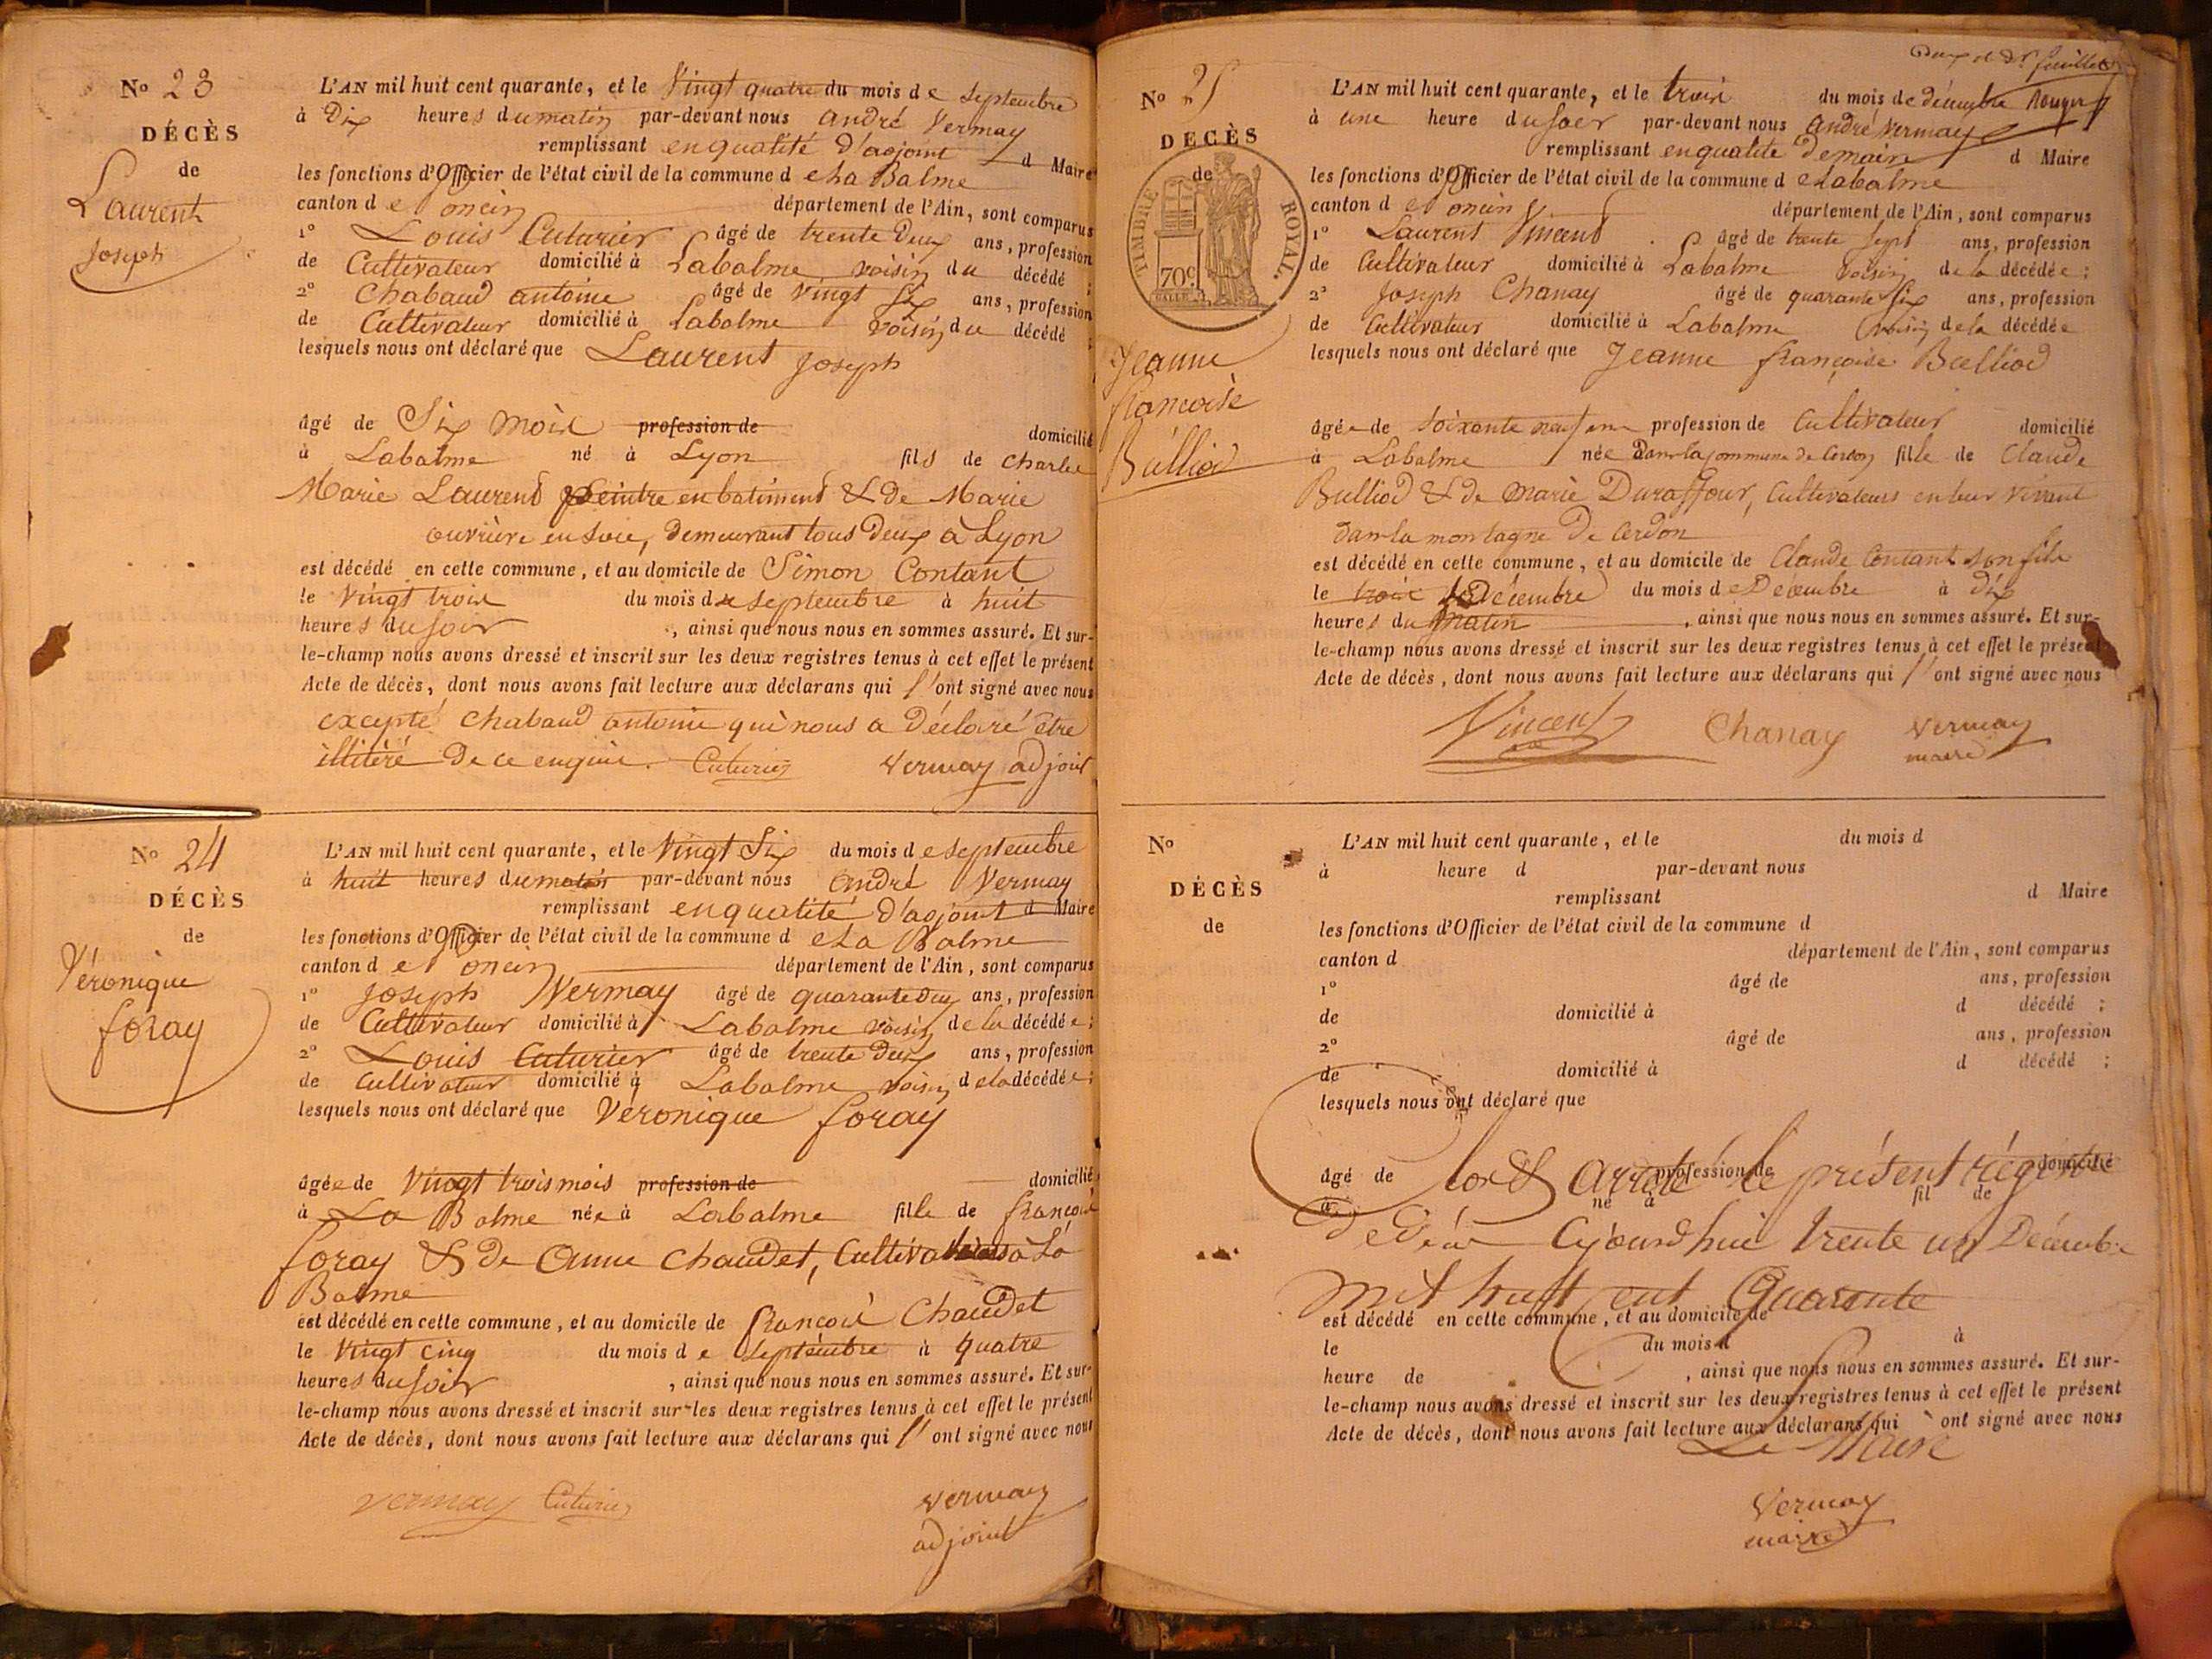 No 23
DÉCÈS
de
Laurent
Joseph
L'AN mil huit cent quarante, et le Vingt quatre du mois de Septembre
à Dix heures du matin par-devant nous André Vermay
remplissant en qualité d'adjoint d Maire
les fonctions d'Officier de l'état civil de la commune de La Balme
canton de Poncin département de l'Ain, sont comparus
1° Louis Cuturier âgé de trente Deux ans, profession
de Cultivateur domicilié à Labalme voisin du décédé ;
2° Chabaud antoine âgé de Vingt Six ans, profession
de Cultivateur domicilié à Labalme voisin du décédé ;
lesquels nous ont déclaré que Laurent Joseph
âgé de Six mois profession de domicilié
à Labalme né à Lyon fils de Charles
Marie Laurend Peintre en batiment & de Marie
ouvrière en Soie, demeurant tous Deux à Lyon
est décédé en cette commune, et au domicile de Simon Contant
le Vingt trois du mois de Septembre à huit
heures du Soir , ainsi que nous nous en sommes assuré. Et sur-
le-champ nous avons dressé et inscrit sur les deux registres tenus à cet effet le présent
Acte de décès, dont nous avons fait lecture aux déclarans qui l'ont signé avec nous
excepté Chabaud antoine qui nous a Déclaré être
illitéré De ce enquis. Cuturier Vermay adjoint
No 24
DÉCÈS
de
Véronique
foray
L'AN mil huit cent quarante, et le Vingt Six du mois de Septembre
à huit heures du matin par-devant nous André Vermay
remplissant en qualité d'adjoint d Maire
les fonctions d'Officier de l'état civil de la commune de La Balme
canton de Poncin département de l'Ain, sont comparus
1° Joseph Vermay âgé de quarante Deux ans, profession
de Cultivateur domicilié à Labalme voisin de la décédée ;
2° Louis Cuturier âgé de trente Deux ans, profession
de Cultivateur domicilié à Labalme voisin de la décédée ;
lesquels nous ont déclaré que Véronique foray
âgée de Vingt trois mois profession de domicilié
à La Balme née à Labalme fille de françois
foray & de Anne Chaudet, Cultivateurs à La
Balme
est décédé en cette commune, et au domicile de françois Chaudet
le Vingt cinq du mois de Septembre à quatre
heures du Soir , ainsi que nous nous en sommes assuré. Et sur-
le-champ nous avons dressé et inscrit sur les deux registres tenus à cet effet le présent
Acte de décès, dont nous avons fait lecture aux déclarans qui l'ont signé avec nous
Vermay Cuturier Vermay
adjoint
feuillet
No 25
DÉCÈS
de
TIMBRE ROYAL.
70c
Jeanne
françoise
Bulliod
L'AN mil huit cent quarante, et le trois du mois de décembre
à une heure du Soir par-devant nous André Vermay
remplissant en qualité De maire d Maire
les fonctions d'Officier de l'état civil de la commune de Labalme
canton de Poncin département de l'Ain, sont comparus
1° Laurent Vincent âgé de trente Sept ans, profession
de Cultivateur domicilié à Labalme voisin de la décédée ;
2° Joseph Chanay âgé de quarante Six ans, profession
de Cultivateur domicilié à Labalme voisin de la décédée
lesquels nous ont déclaré que Jeanne françoise Bulliod
âgée de Soixante neuf ans profession de Cultivateur domicilié
à Labalme née Dans la commune de Cerdon fille de Claude
Bulliod & de Marie Duraffour, Cultivateurs en leur vivant
dans la montagne De Cerdon
est décédé en cette commune, et au domicile de Claude Contant son fils
le trois Décembre du mois de Décembre à dix
heures du matin , ainsi que nous nous en sommes assuré. Et sur-
le-champ nous avons dressé et inscrit sur les deux registres tenus à cet effet le présent
Acte de décès, dont nous avons fait lecture aux déclarans qui l'ont signé avec nous
Vincent Chanay Vermay
maire
No
DÉCÈS
de
L'AN mil huit cent quarante, et le du mois d
à heure d par-devant nous
remplissant d Maire
les fonctions d'Officier de l'état civil de la commune d
canton d département de l'Ain, sont comparus
1° âgé de ans, profession
de domicilié à d décédé ;
2° âgé de ans, profession
de domicilié à d décédé ;
lesquels nous ont déclaré que
âgé de profession de domicilié
à né à fil de
Clos & Arrêté le présent régistre
de Décès Cejourd'hui trente un Décembre
mil huit cent Quarante
est décédé en cette commune, et au domicile de
le du mois d à
heure de , ainsi que nous nous en sommes assuré. Et sur-
le-champ nous avons dressé et inscrit sur les deux registres tenus à cet effet le présent
Acte de décès, dont nous avons fait lecture aux déclarans qui ont signé avec nous
Le Maire
Vermay
maire